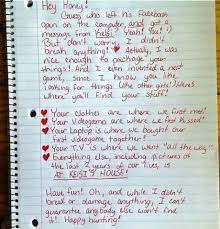 Hey Honey!
Guess who left his Facebook
open on the computer and got a
message from Keisi? Yeah! You!
But don't worry, I didn't
break anything! Actually, I was
nice enough to package your
things! And I even invented a neat
game, since I know you like
looking for things (like other girls)! Here's
where you'll find your stuff!
♥ Your clothes are where we first met!
♥ Your videogames are where we first kissed!
♥ Your laptop is where we bought our
first videogame together!
♥ Your T.V. is where we went "all the way"
♥ Everything else, including pictures of
the last 2 years of our lives, is
AT KEISI'S HOUSE!
Have fun! Oh, and while I didn't
break or damage anything, I can't
guarantee anybody else won't find
it! Happy hunting!